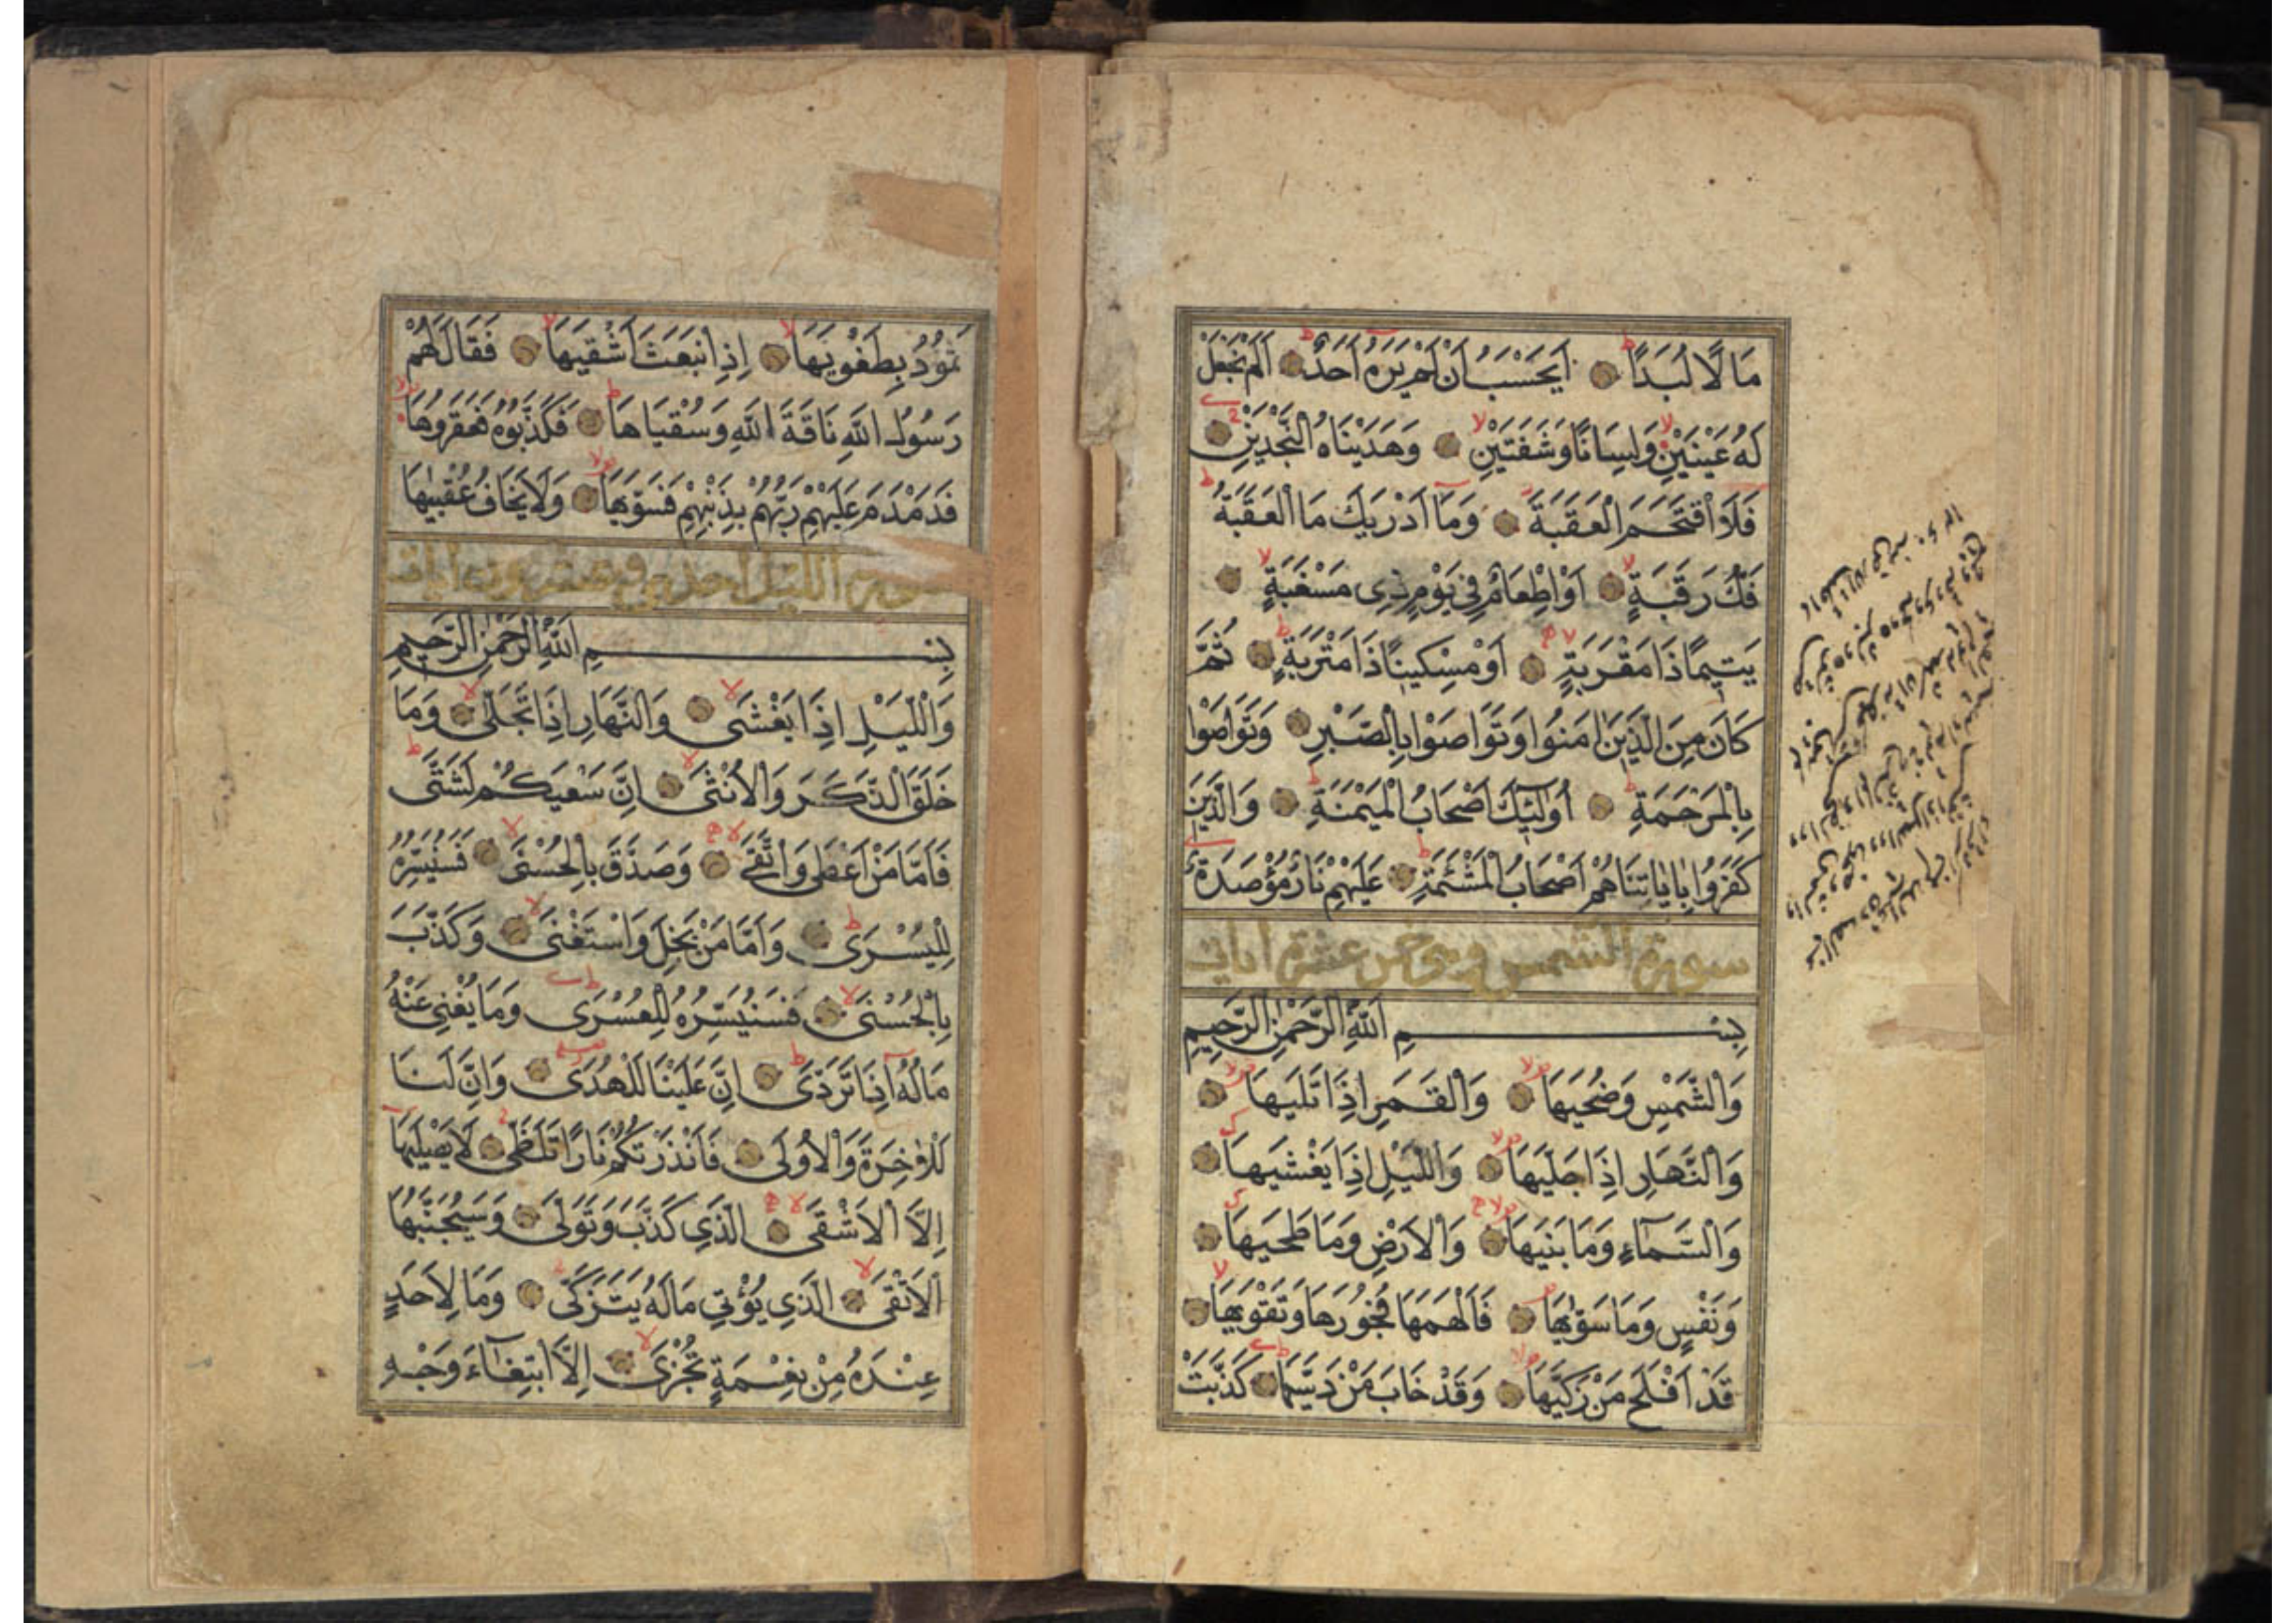 مَا لًا لُبَدًا اَيَحْسَبُ اَنْ لَمْ يَرَهُ اَحَدٌ اَلَمْ نَجْعَلْ
لَهُ عَيْنَيْنِ وَلِسَانًا وَشَفَتَيْنِ وَهَدَيْنَاهُ النَّجْدَيْنِ
فَلَا اقْتَحَمَ الْعَقَبَةَ وَمَا اَدْرٰيكَ مَا الْعَقَبَةُ
فَكُّ رَقَبَةٍ اَوْ اِطْعَامٌ فِى يَوْمٍ ذِى مَسْغَبَةٍ
يَتِيمًا ذَا مَقْرَبَةٍ اَوْ مِسْكِينًا ذَا مَتْرَبَةٍ ثُمَّ
كَانَ مِنَ الَّذِينَ اٰمَنُوا وَتَوَاصَوْا بِالصَّبْرِ وَتَوَاصَوْا
بِالْمَرْحَمَةِ اُولٰئِكَ اَصْحَابُ الْمَيْمَنَةِ وَالَّذِينَ
كَفَرُوا بِاٰيَاتِنَا هُمْ اَصْحَابُ الْمَشْئَمَةِ عَلَيْهِمْ نَارٌ مُؤْصَدَةٌ
سورة الشمس وهى خمس عشرة ايات
بِسْمِ اللّٰهِ الرَّحْمٰنِ الرَّحِيمِ
وَالشَّمْسِ وَضُحٰيهَا وَالْقَمَرِ اِذَا تَلٰيهَا
وَالنَّهَارِ اِذَا جَلّٰيهَا وَاللَّيْلِ اِذَا يَغْشٰيهَا
وَالسَّمَاءِ وَمَا بَنٰيهَا وَالْاَرْضِ وَمَا طَحٰيهَا
وَنَفْسٍ وَمَا سَوّٰيهَا فَاَلْهَمَهَا فُجُورَهَا وَتَقْوٰيهَا
قَدْ اَفْلَحَ مَنْ زَكّٰيهَا وَقَدْ خَابَ مَنْ دَسّٰيهَا كَذَّبَتْ
ثَمُودُ بِطَغْوٰيهَا اِذِ انْبَعَثَ اَشْقٰيهَا فَقَالَ لَهُمْ
رَسُولُ اللّٰهِ نَاقَةَ اللّٰهِ وَسُقْيَاهَا فَكَذَّبُوهُ فَعَقَرُوهَا
فَدَمْدَمَ عَلَيْهِمْ رَبُّهُمْ بِذَنْبِهِمْ فَسَوّٰيهَا وَلَا يَخَافُ عُقْبٰيهَا
سورة الليل احدى وعشرون ايات
بِسْمِ اللّٰهِ الرَّحْمٰنِ الرَّحِيمِ
وَالَّيْلِ اِذَا يَغْشَى وَالنَّهَارِ اِذَا تَجَلَّى وَمَا
خَلَقَ الذَّكَرَ وَالْاُنْثَى اِنَّ سَعْيَكُمْ لَشَتَّى
فَاَمَّا مَنْ اَعْطَى وَاتَّقَى وَصَدَّقَ بِالْحُسْنَى فَسَنُيَسِّرُهُ
لِلْيُسْرَى وَاَمَّا مَنْ بَخِلَ وَاسْتَغْنَى وَكَذَّبَ
بِالْحُسْنَى فَسَنُيَسِّرُهُ لِلْعُسْرَى وَمَا يُغْنِى عَنْهُ
مَالُهُ اِذَا تَرَدَّى اِنَّ عَلَيْنَا لَلْهُدَى وَاِنَّ لَنَا
لَلْاٰخِرَةَ وَالْاُولَى فَاَنْذَرْتُكُمْ نَارًا تَلَظَّى لَا يَصْلٰيهَا
اِلَّا الْاَشْقَى الَّذِى كَذَّبَ وَتَوَلَّى وَسَيُجَنَّبُهَا
الْاَتْقَى الَّذِى يُؤْتِى مَالَهُ يَتَزَكَّى وَمَا لِاَحَدٍ
عِنْدَهُ مِنْ نِعْمَةٍ تُجْزَى اِلَّا ابْتِغَاءَ وَجْهِ